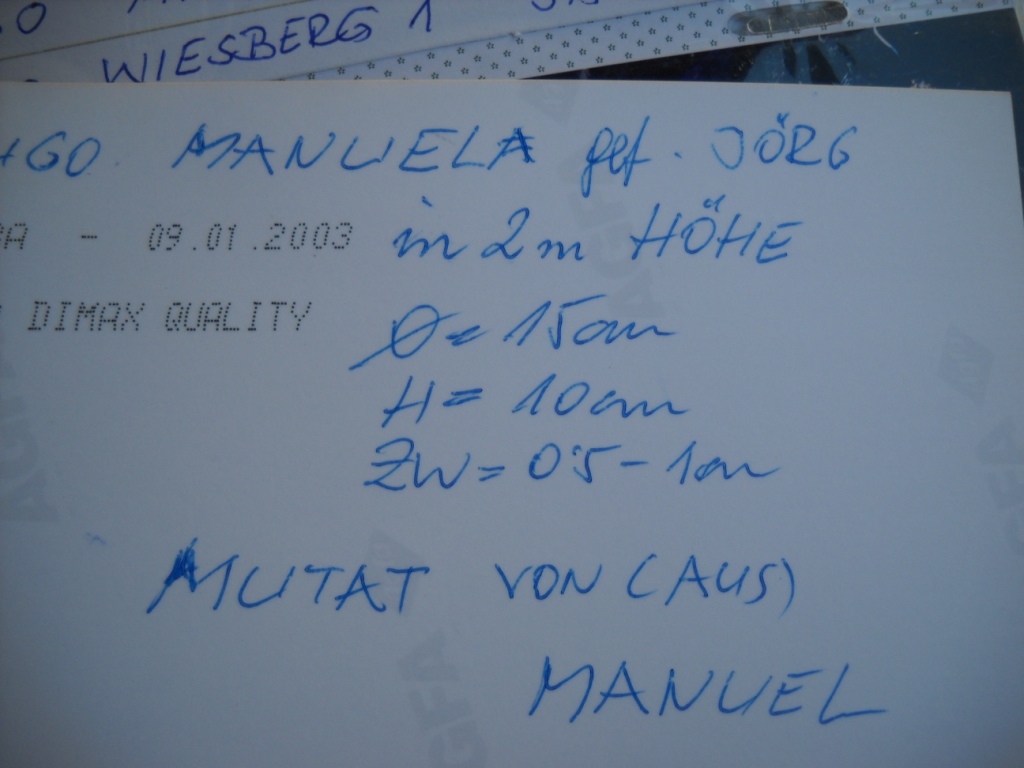 WIESBERG 1
MANUELA gef. JÖRG
- 09.01.2003 in 2m HÖHE
DIMAX QUALITY
Ø = 15cm
H = 10cm
ZW = 0'5 - 1cm
MUTAT VON (AUS)
MANUEL
AGFA
AGFA
AGFA